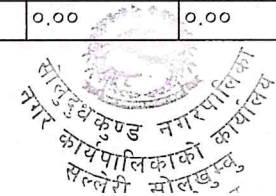 ०.०० ०.००
सोलुदुधकुण्ड नगरपालिका
नगर कार्यपालिकाको कार्यालय
सल्लेरी सोलुखुम्बु